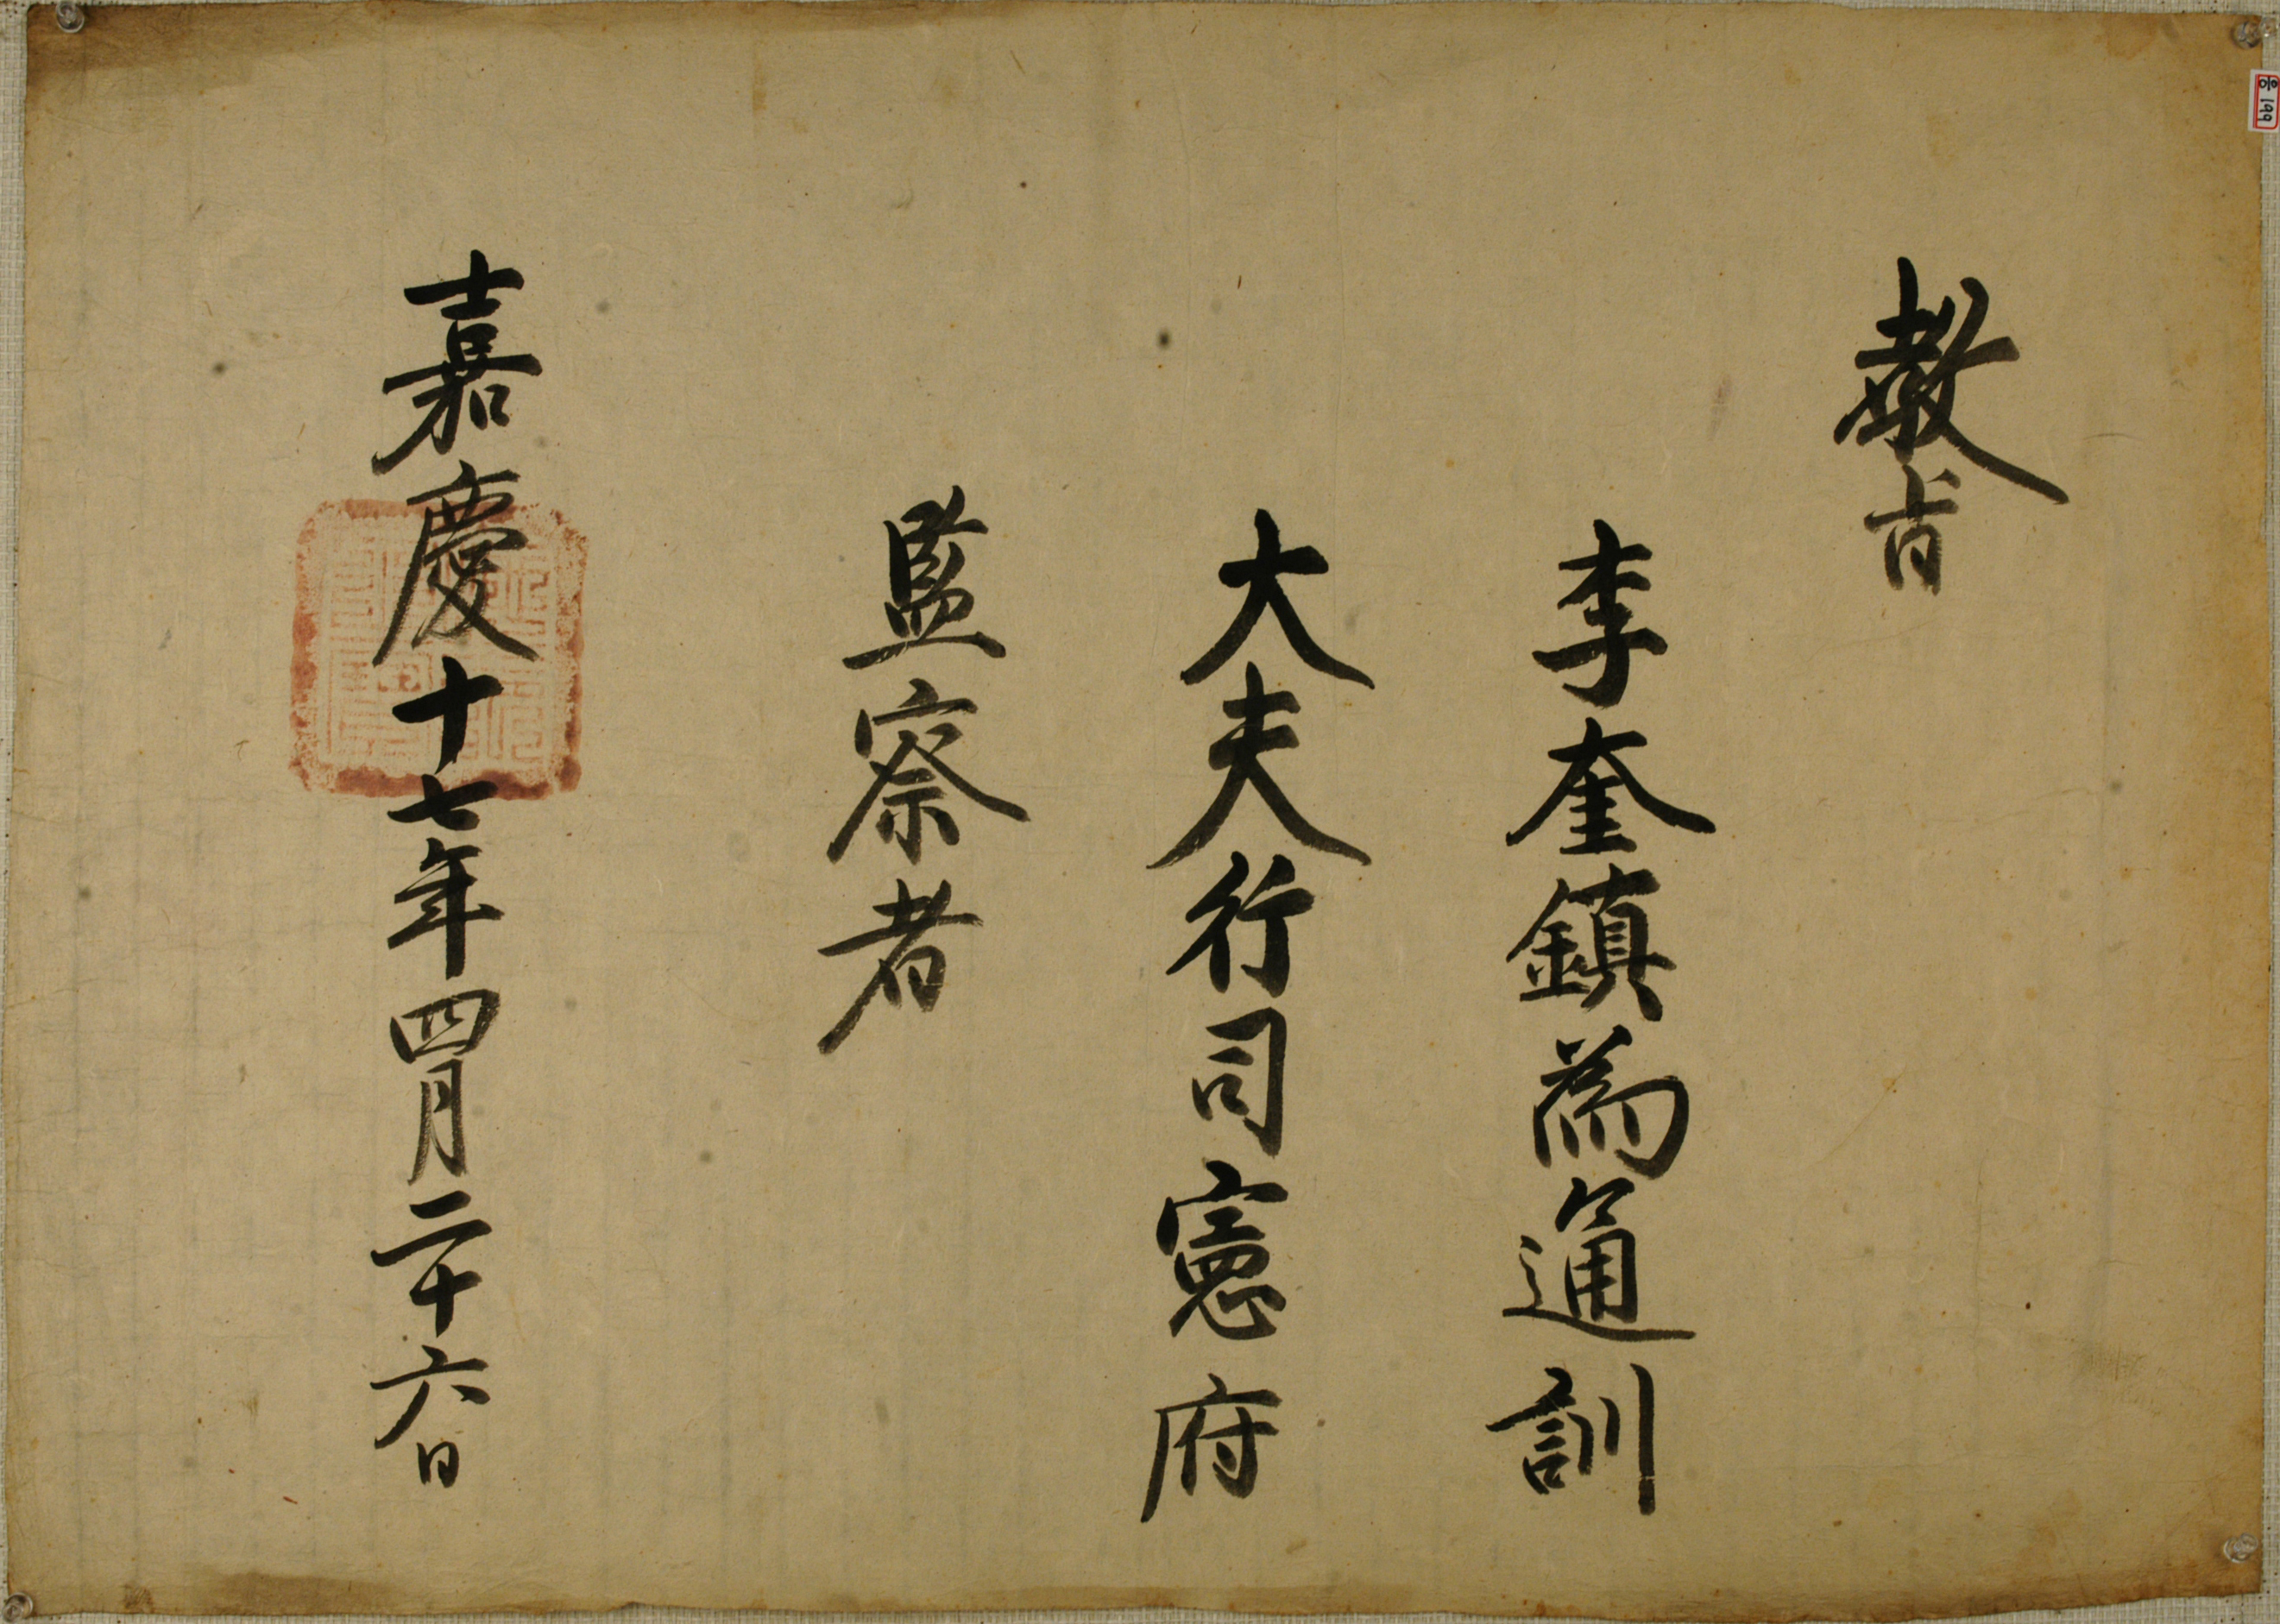 教旨
李奎鎭為通訓
大夫行司憲府
監察者
嘉慶十七年四月二十六日
199